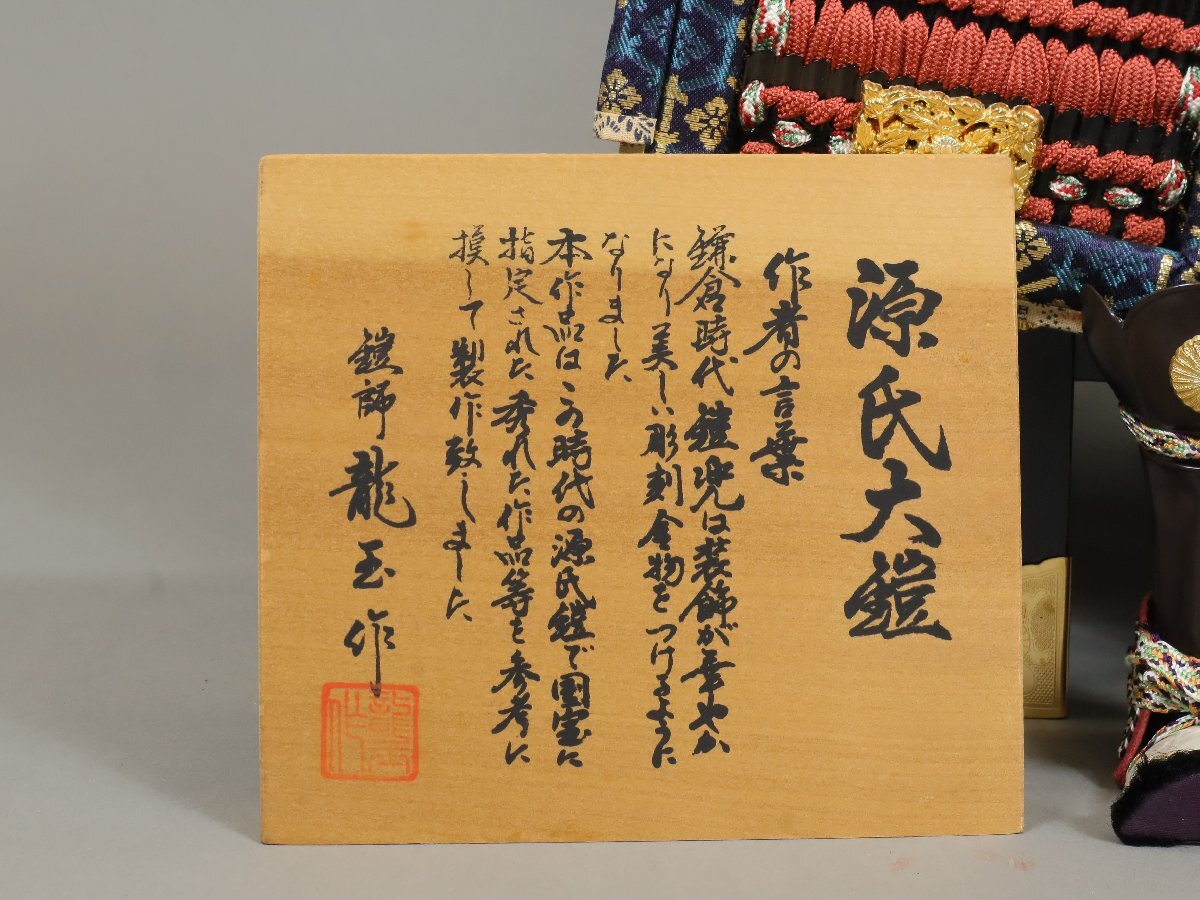 源氏大鎧
作者の言葉
鎌倉時代鎧兜は装飾が華やか
になり美しい彫刻金物をつけるように
なりました
本作品はこの時代の源氏鎧で国宝に
指定された秀れた作品等を参考に
模して製作致しました
鎧師 龍玉 作